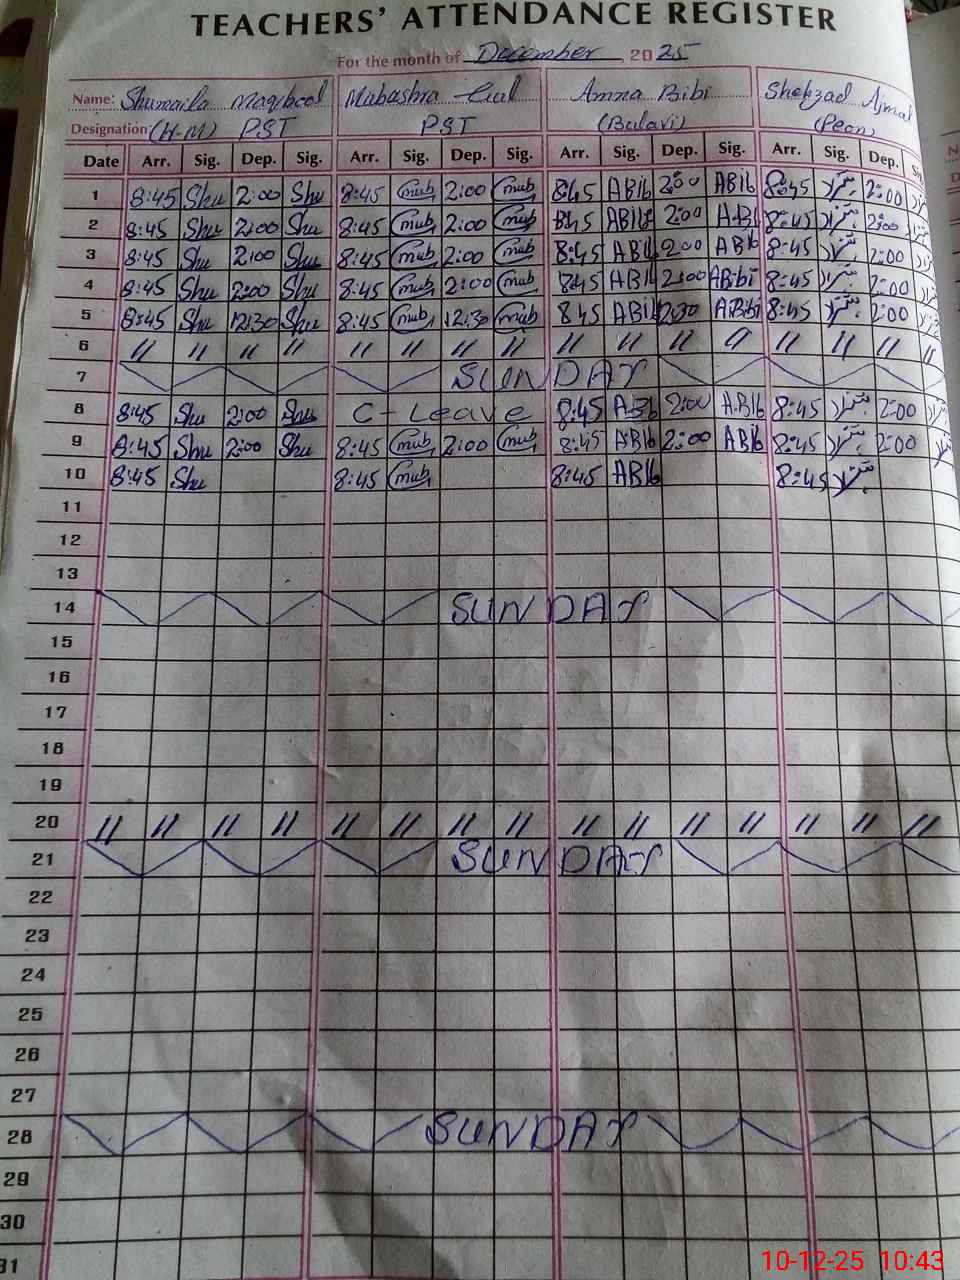 TEACHERS' ATTENDANCE REGISTER
For the month of December, 2025
Name: Shumaila Maqbool Mubashra Gul Amna Bibi Shehzad Ajmal
Designation: (H-M) PST PST (Bulavi) (Peon)
Date Arr. Sig. Dep. Sig. Arr. Sig. Dep. Sig. Arr. Sig. Dep. Sig. Arr. Sig. Dep.
1 8:45 Shu 2:00 Shu 8:45 mub 2:00 mub 8:45 ABib 2:00 ABib 8:45 2:00
2 8:45 Shu 2:00 Shu 8:45 mub 2:00 mub 8:45 ABib 2:00 A.Bi 8:45 2:00
3 8:45 Shu 2:00 Shu 8:45 mub 2:00 mub 8:45 ABib 2:00 ABib 8:45 2:00
4 8:45 Shu 2:00 Shu 8:45 mub 2:00 mub 8:45 ABib 2:00 ABibi 8:45 2:00
5 8:45 Shu 12:30 Shu 8:45 mub 12:30 mub 8:45 ABib ABibi 8:45 2:00
6 11 11 11 11 11 11 11 11 11 11 11 11 11 11 11 11
7 SUNDAY
8 8:45 Shu 2:00 Shu C-Leave 8:45 A.Bib 2:00 A.Bib 8:45 2:00
9 8:45 Shu 2:00 Shu 8:45 mub 2:00 mub 8:45 ABib 2:00 ABib 8:45 2:00
10 8:45 Shu 8:45 mub 8:45 ABib 8:45
11
12
13
14 SUNDAY
15
16
17
18
19
20 11 11 11 11 11 11 11 11 11 11 11 11 11 11 11
21 SUNDAY
22
23
24
25
26
27
28 SUNDAY
29
30
31
10-12-25 10:43